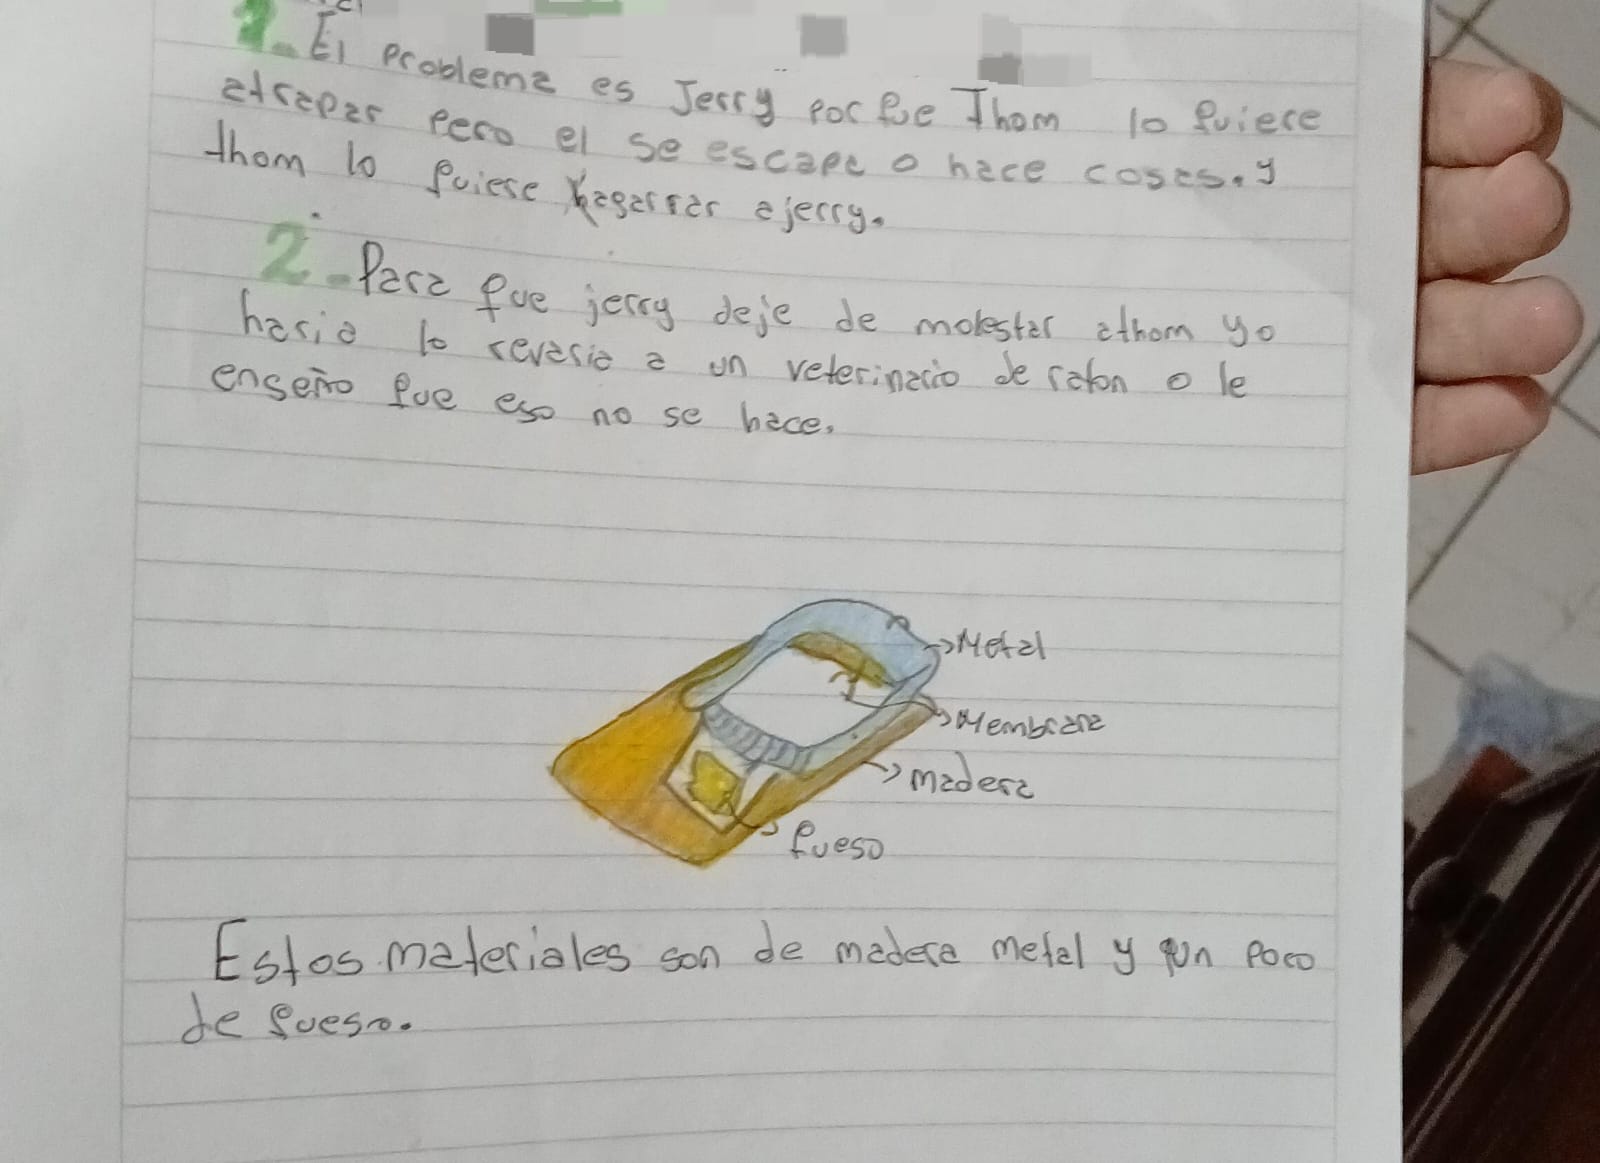 1.- El problema es Jerry porque Thom lo quiere
atrapar pero el se escapa o hace cosas. y
thom lo quiere hagarrar a jerry.
2.- Para que jerry deje de molestar a thom yo
haria lo revaria a un veterinario de raton o le
enseño que eso no se hace.
Metal
Membrana
madera
queso
Estos materiales son de madera metal y un poco
de queso.